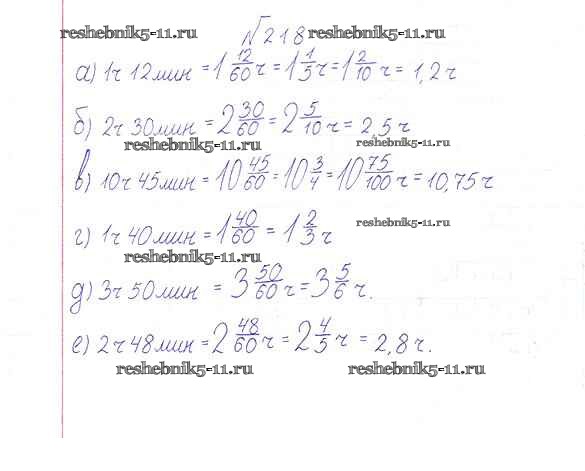 reshebnik5-11.ru №218 reshebnik5-11.ru
а) 1ч 12мин = 1 12/60 ч = 1 1/5 ч = 1 2/10 ч = 1,2 ч
б) 2ч 30мин = 2 30/60 = 2 5/10 ч = 2,5 ч
reshebnik5-11.ru reshebnik5-11.ru
в) 10ч 45мин = 10 45/60 = 10 3/4 = 10 75/100 ч = 10,75 ч
reshebnik5-11.ru
г) 1ч 40мин = 1 40/60 = 1 2/3 ч
reshebnik5-11.ru
д) 3ч 50мин = 3 50/60 ч = 3 5/6 ч.
е) 2ч 48мин = 2 48/60 ч = 2 4/5 ч = 2,8 ч.
reshebnik5-11.ru reshebnik5-11.ru